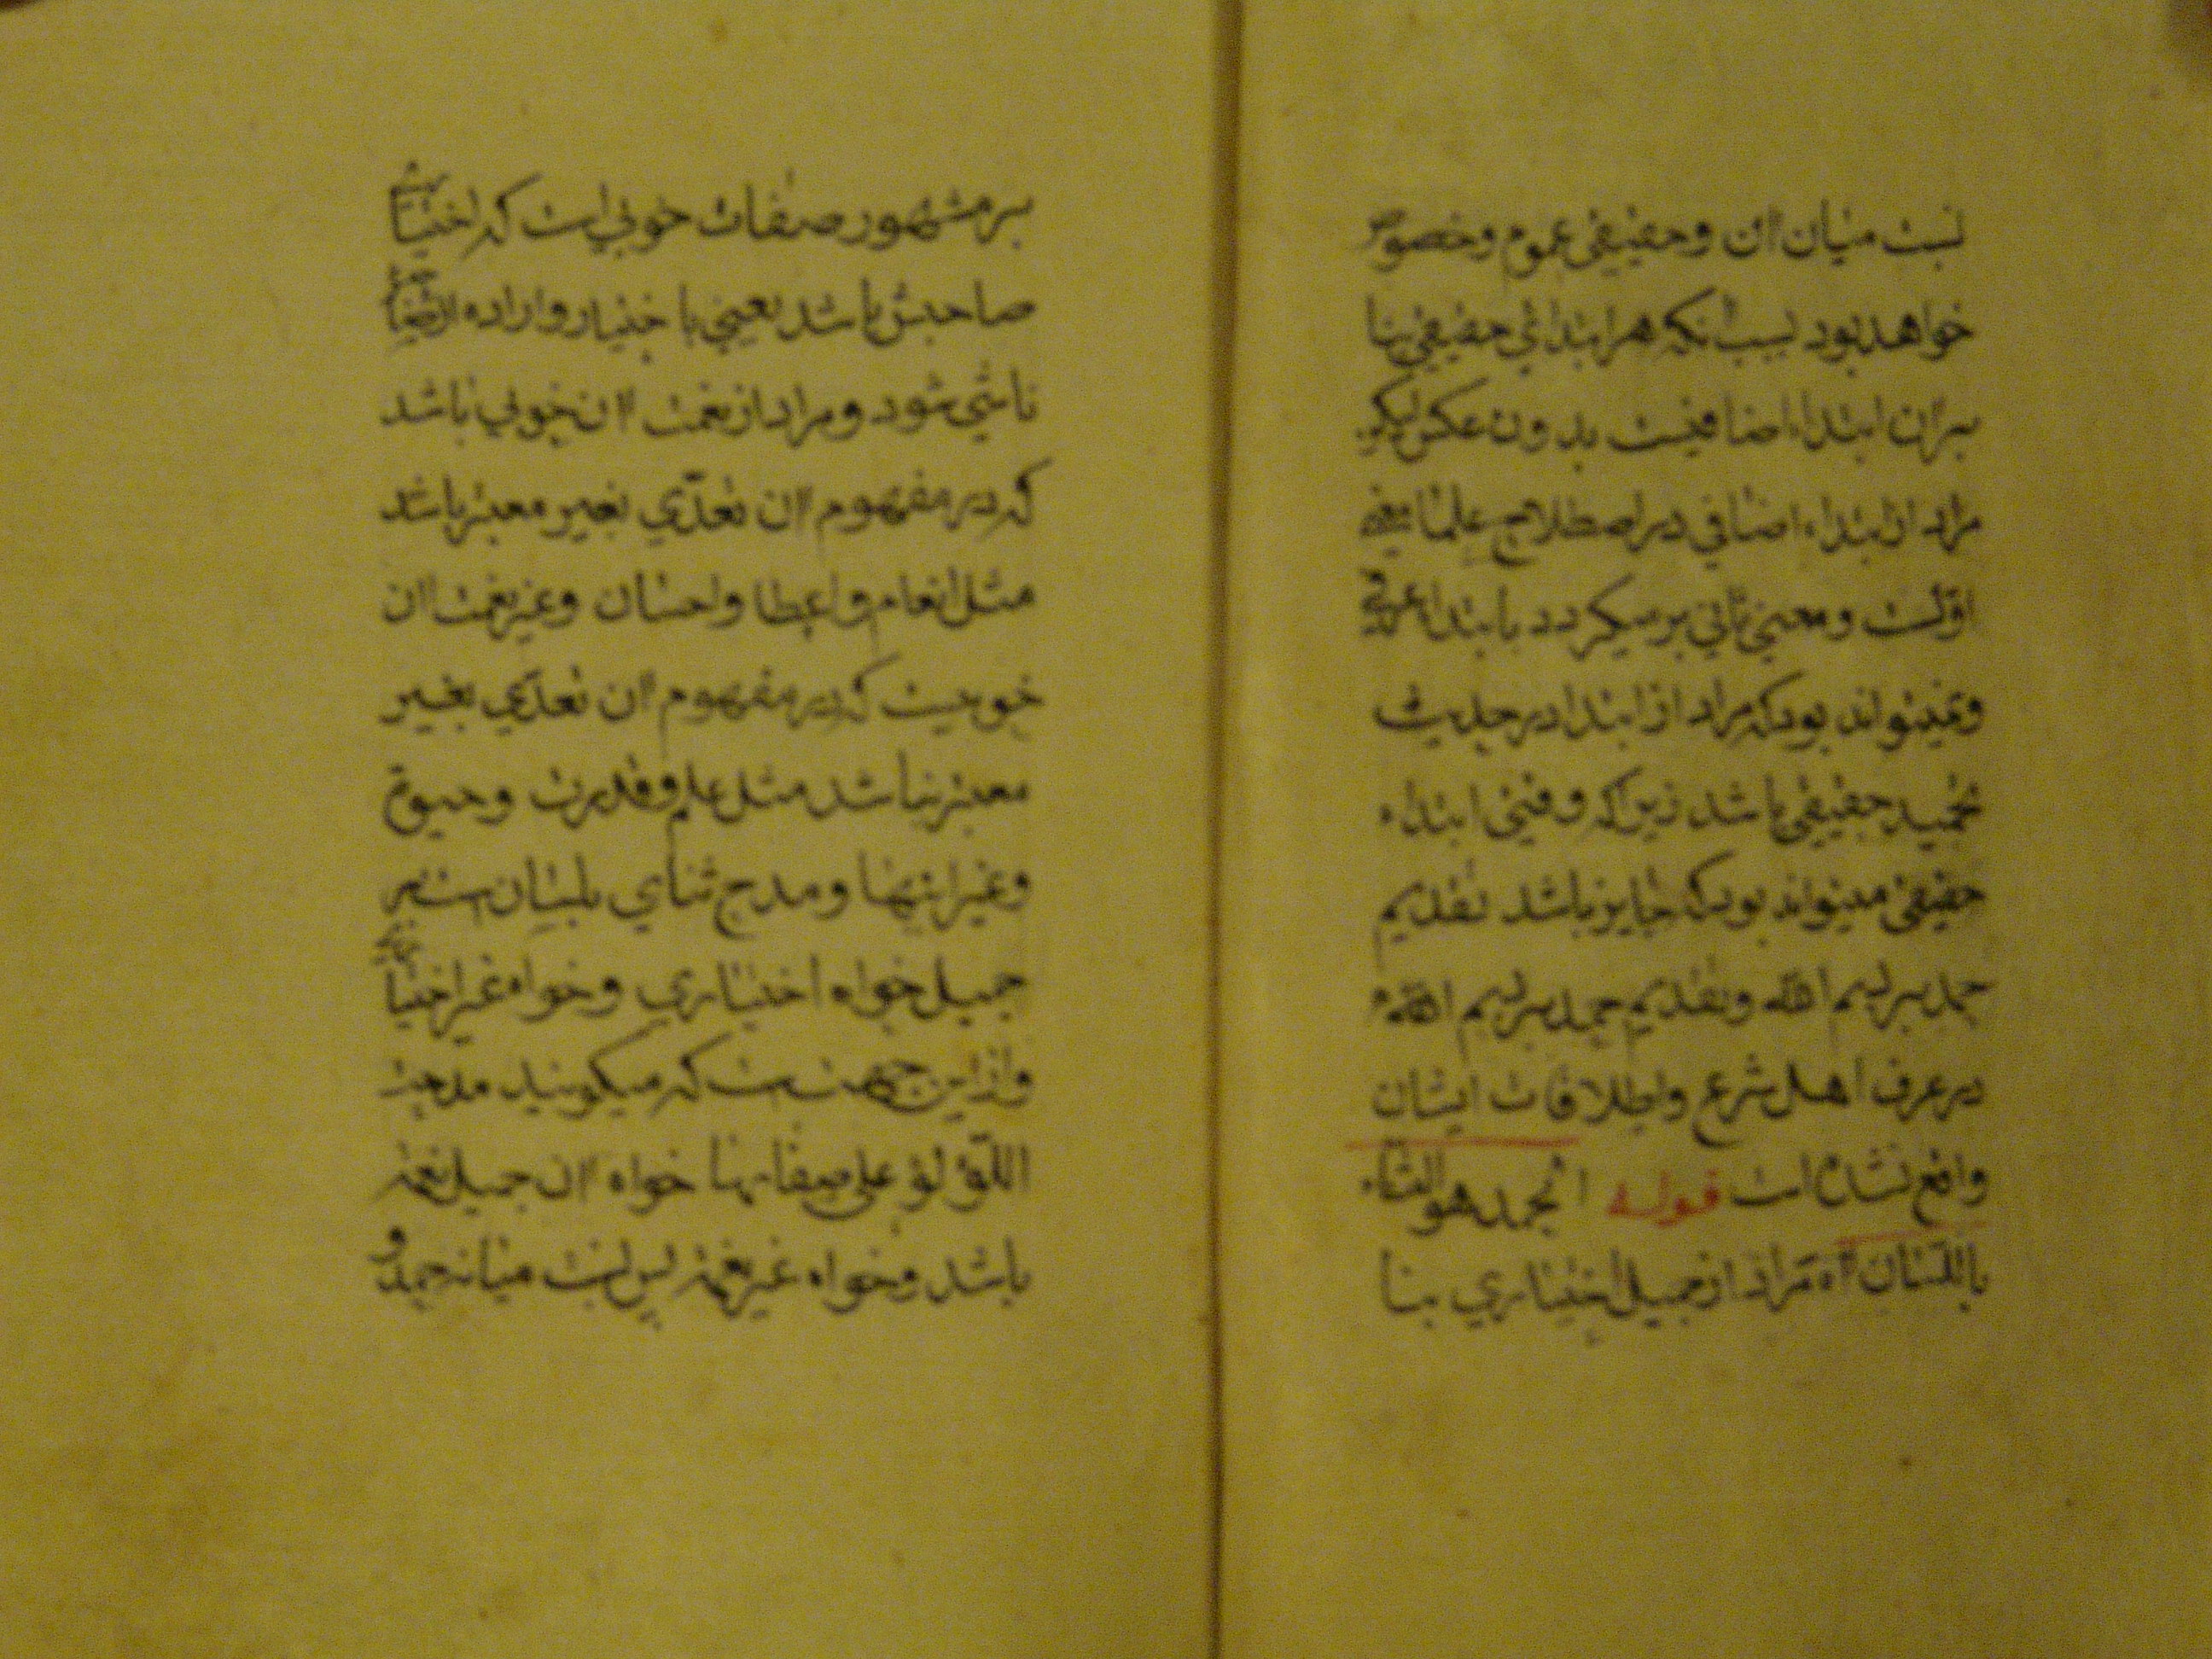 نسبت میان ان و حقیقی عموم و خصوص
خواهد بود بسبب انکه هر ابتدائی حقیقی بنا
بران ابتداء اضافیست بدون عکس لیکن
مراد از ابتداء اضافی در اصطلاح علما معنی
اوّلست و معنی ثانی بر میکردد بابتداء عرفی
و نمیتواند بود که مراد از ابتدا در حدیث
تحمید حقیقی باشد زیرا که وقتی ابتداء
حقیقی میتواند بود که جایز باشد تقدیم
حمد بر بسم الله و تقدیم حمد بر بسم الله
در عرف اهل شرع و اطلاقات ایشان
واقع نشده است قوله الحمد هو الثناء
باللسان اه مراد از جمیل اختیاری بنا
بر مشهور صفات خوبی است که اختیار
صاحبش باشد یعنی با ختیار و اراده
ناشی شود و مراد از نعمت ان خوبی باشد
که در مفهوم ان تعدّی بغیر معتبر باشد
مثل انعام و اعطا و احسان و غیر نعمت ان
خوبیست که در مفهوم ان تعدّی بغیر
معتبر نباشد مثل علم و قدرت و حیوة
و غیر اینها و مدح ثنای بلسان است بر
جمیل خواه اختیاری و خواه غیر اختیاری
و از این جهت است که میکویند مدحت
اللؤلؤ علی صفائها خواه ان جمیل نعمة
باشد و خواه غیر نعمة پس نسبت میانه حمد و